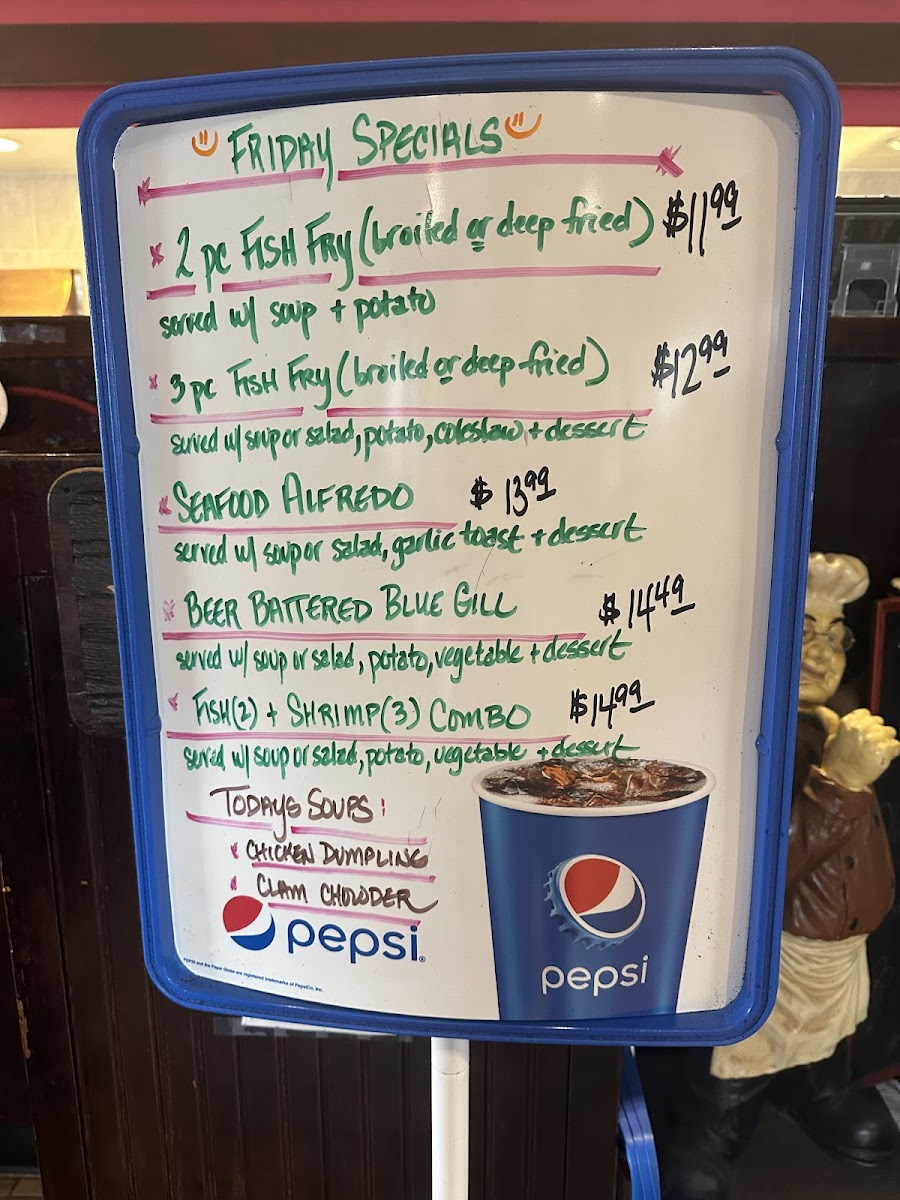 FRIDAY SPECIALS
2 pc FISH FRY (broiled or deep fried) $11.99
served w/ soup + potato
3 pc FISH FRY (broiled or deep fried) $12.99
served w/ soup or salad, potato, coleslaw + dessert
SEAFOOD ALFREDO $13.99
served w/ soup or salad, garlic toast + dessert
BEER BATTERED BLUE GILL $14.49
served w/ soup or salad, potato, vegetable + dessert
FISH(2) + SHRIMP(3) COMBO $14.99
served w/ soup or salad, potato, vegetable + dessert
TODAYS SOUPS:
CHICKEN DUMPLING
CLAM CHOWDER
pepsi®
pepsi
PEPSI and the Pepsi Globe are registered trademarks of PepsiCo, Inc.